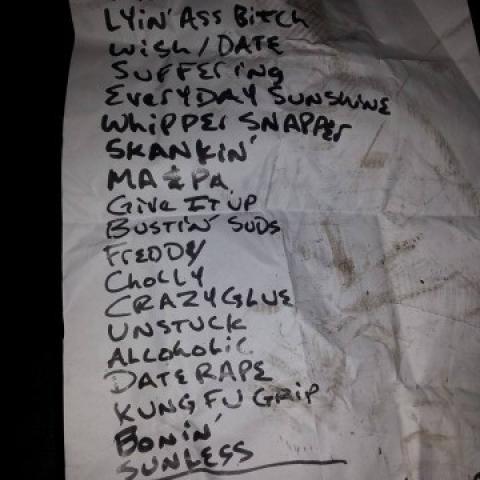 LYiN' ASS BiTCH
WiSH / DATE
SUFFERiNg
EVERYDAY SUNSHINE
WHiPPER SNAPPER
SKANKiN'
MA & PA
GiVE IT UP
BUSTiN' SUDS
FREDDY
CHOLLY
CRAZYGLUE
UNSTUCK
ALCOHOLiC
DATE RAPE
KUNG FU GRiP
BONiN'
SUNLESS